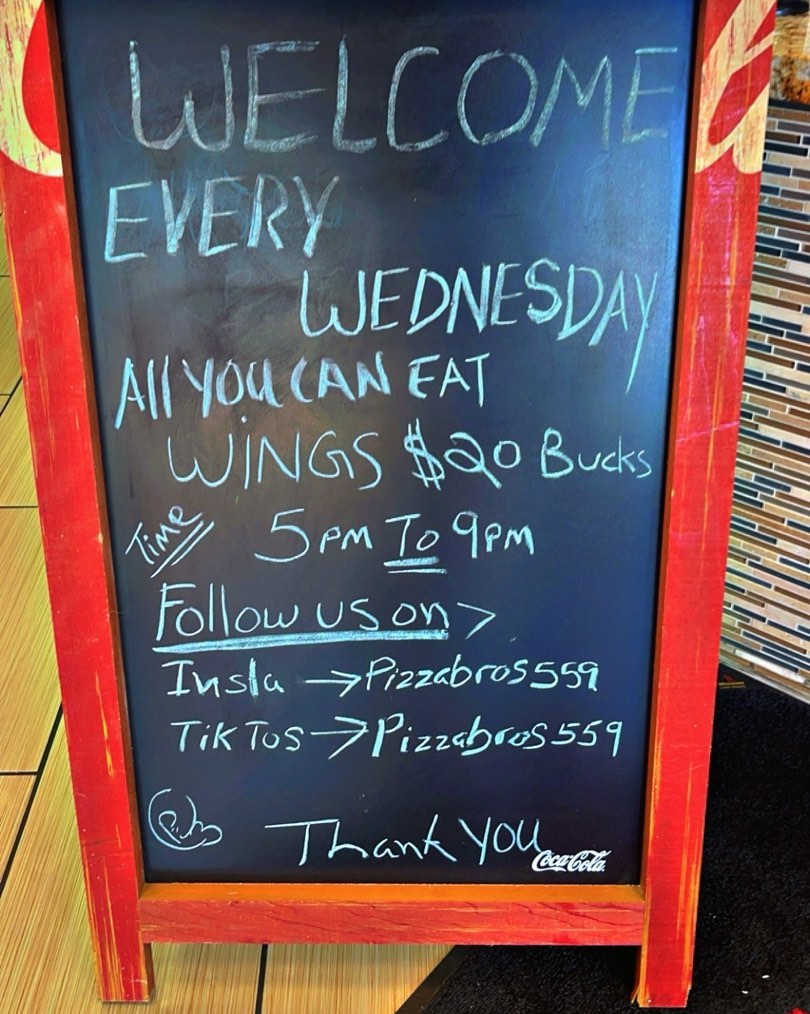 WELCOME
EVERY
WEDNESDAY
All YOU CAN EAT
WINGS $20 Bucks
Time 5pm To 9pm
Follow us on >
Insta → Pizzabros559
TikTos → Pizzabros559
Thank you
Coca-Cola